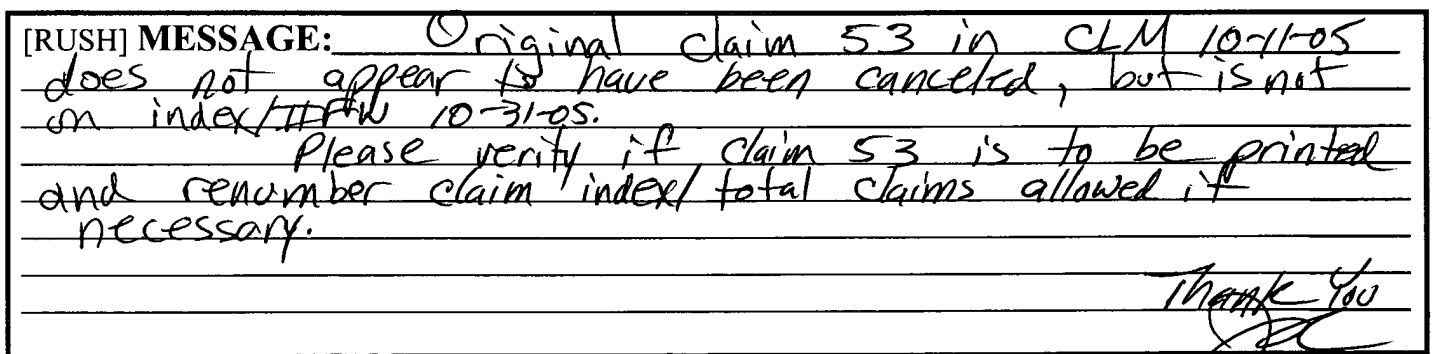 [RUSH] MESSAGE: Original claim 53 in CLM 10-11-05
does not appear to have been canceled, but is not
on index/IIFW 10-31-05.
Please verify if claim 53 is to be printed
and renumber claim index/total claims allowed if
necessary.
Thank You